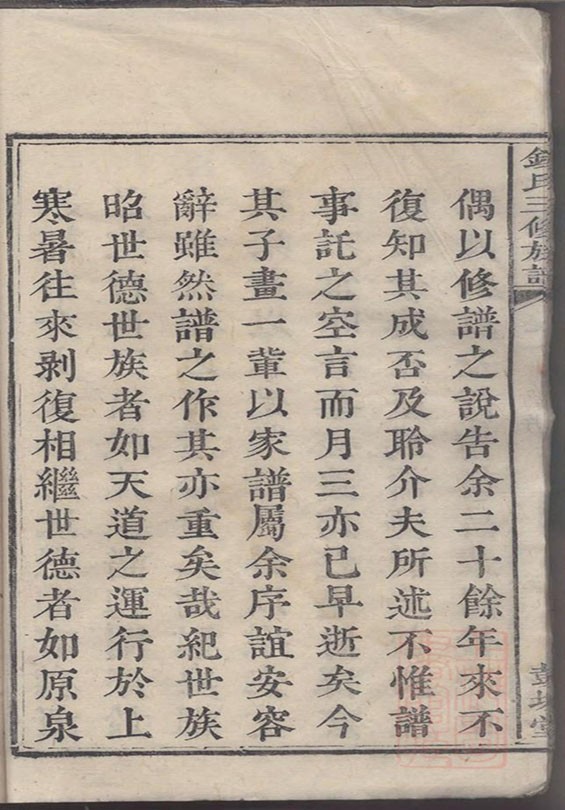 鍾氏三修族譜
偶以修譜之說告余二十餘年來不
復知其成否及聆介夫所述不惟譜
事託之空言而月三亦已早逝矣今
其子畫一輩以家譜屬余序誼安容
辭雖然譜之作其亦重矣哉紀世族
昭世德世族者如天道之運行於上
寒暑往來剥復相繼世德者如原泉